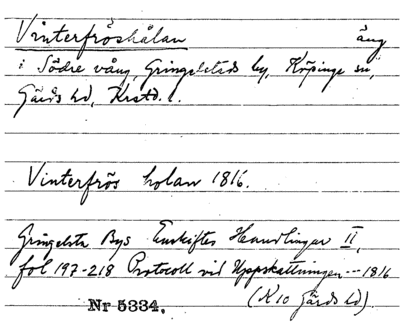 Vinterfröshålan äng
i Södre vång, Gringelstads by, Köpinge sn,
Gärds hd, Krstd. l.
Vinterfrös holan 1816.
Gringelsta Bys Enskiftes Handlingar II,
fol 197-218 Protocoll vid Uppskattningen --- 1816
(K10 Gärds hd)
Nr 5334.